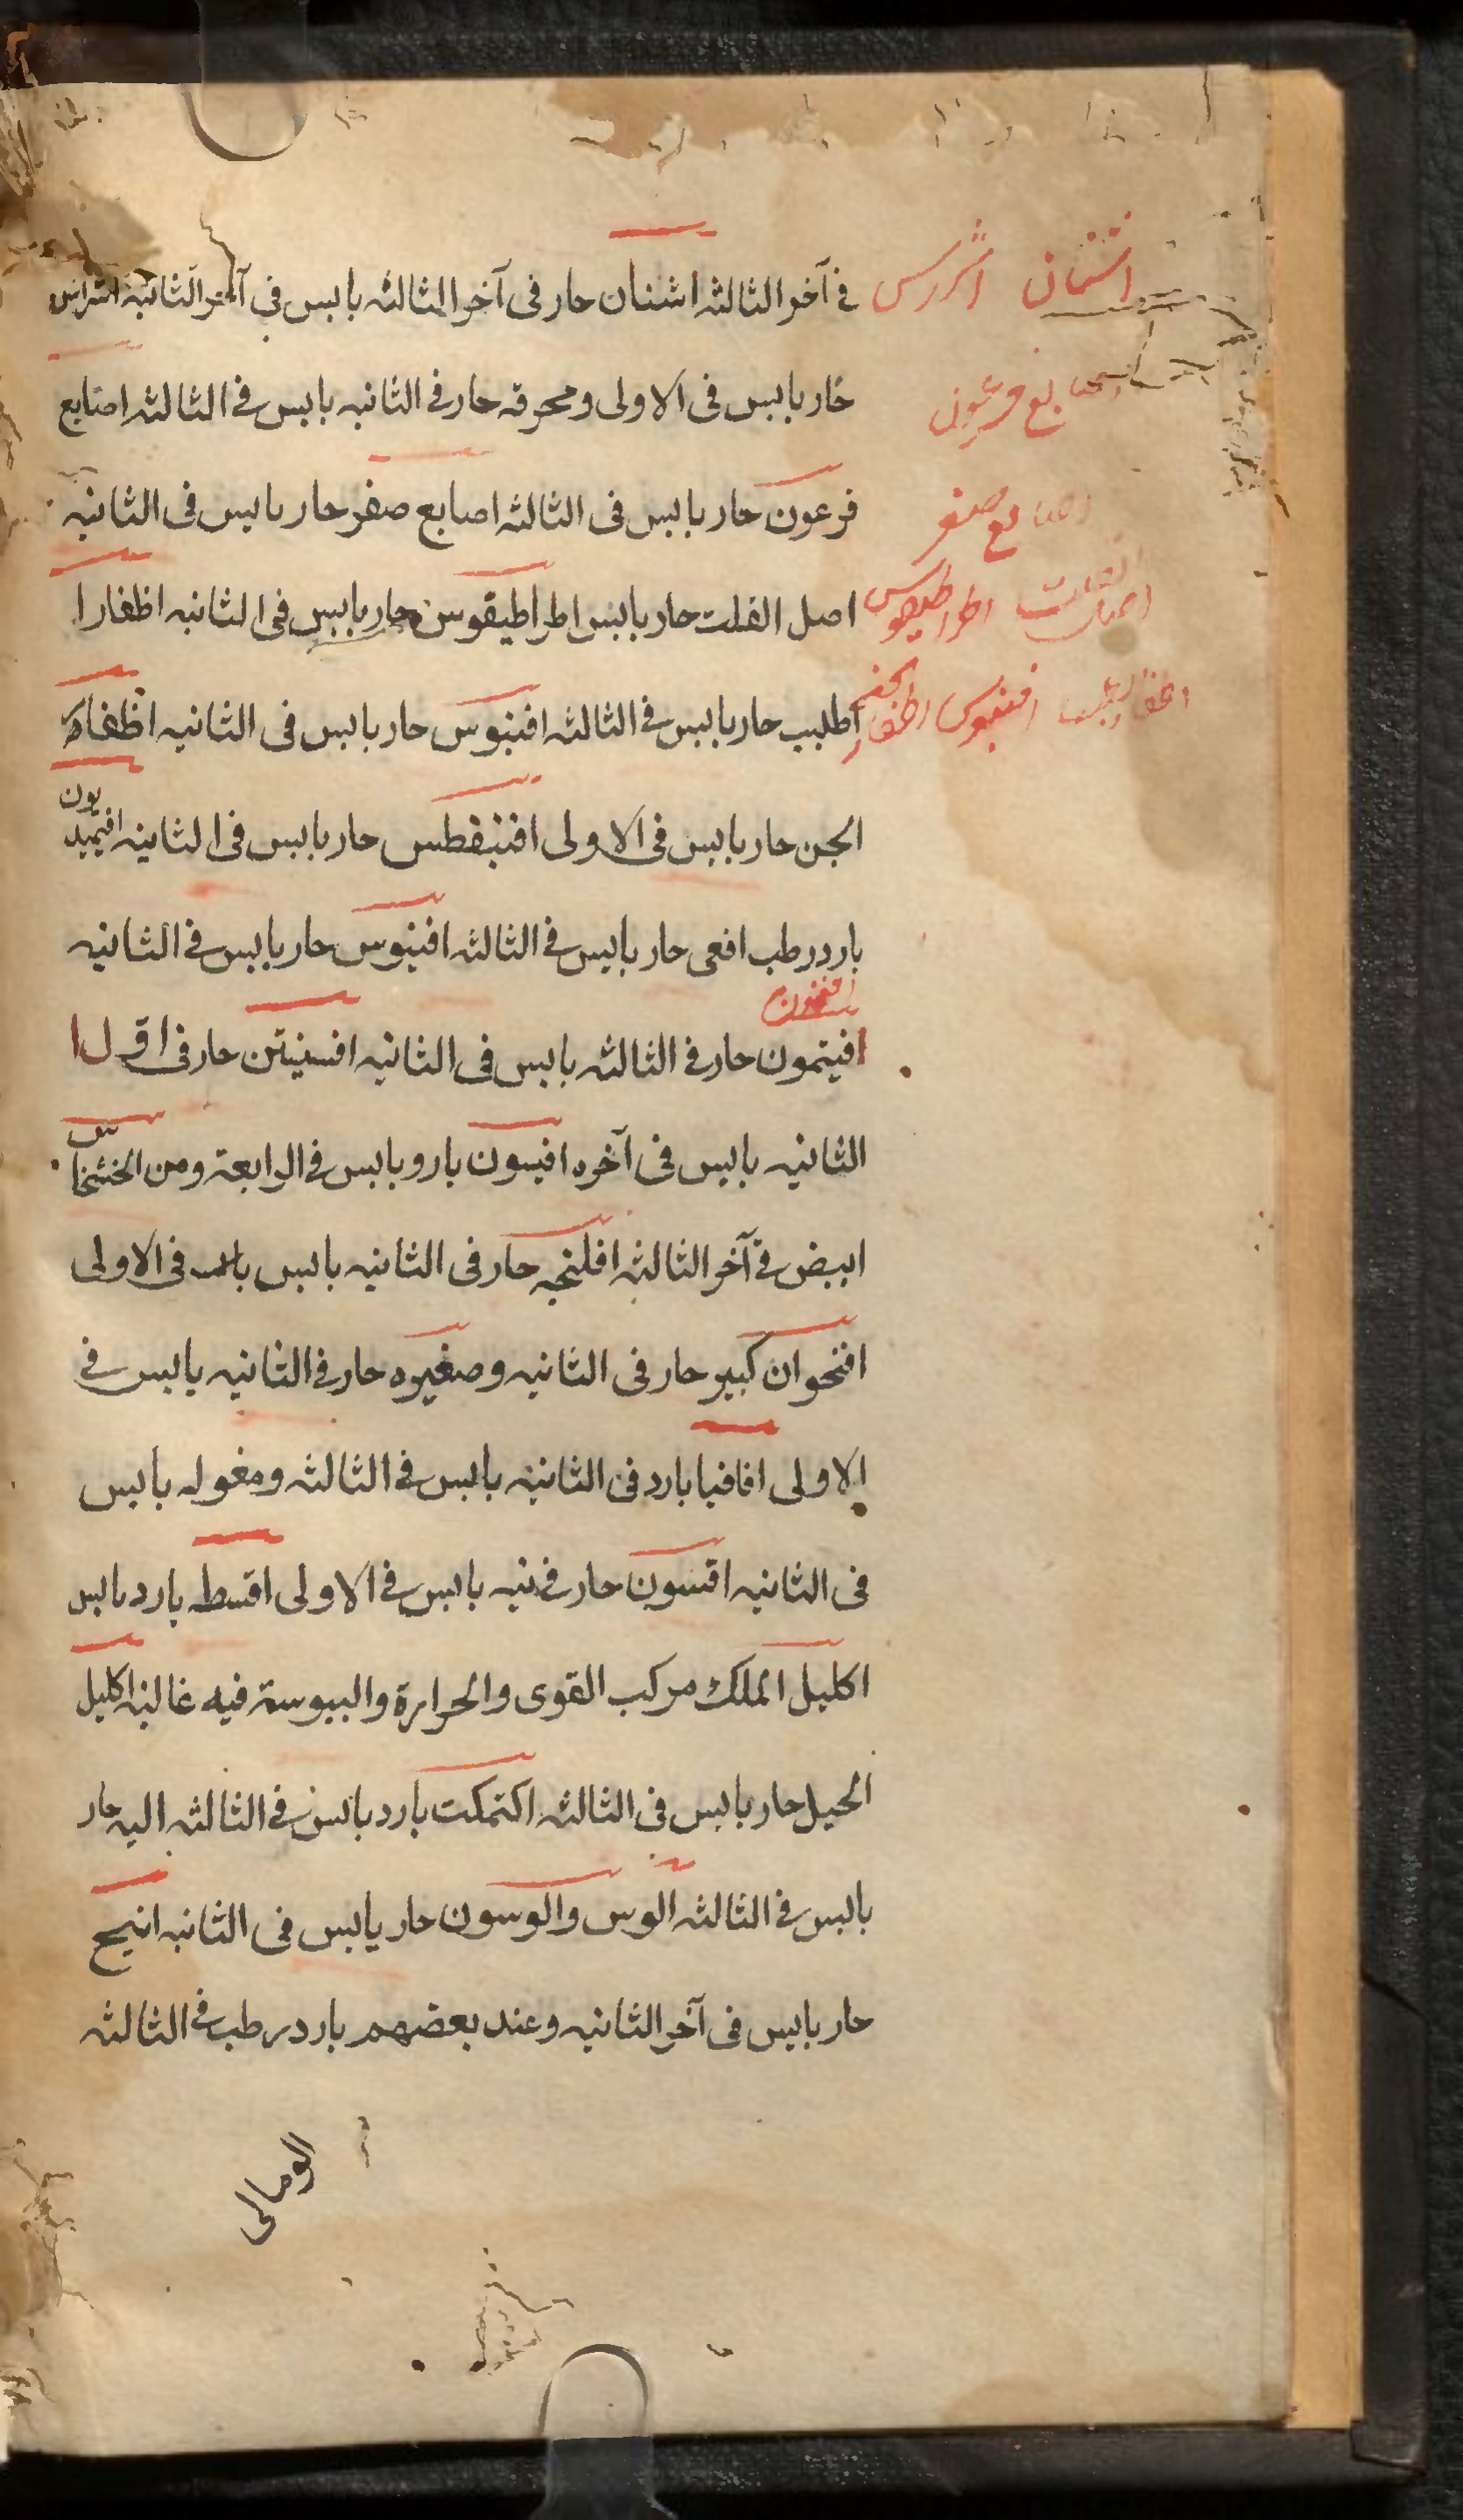 في آخر الثالثه اشنان حار فى آخر الثالثه يابس في آخر الثانيه اشراس
حار يابس فى الاولى ومحرقه حار في الثانيه يابس في الثالثه اصابع
فرعون حار يابس فى الثالثه اصابع صفر حار يابس فى الثانيه
اصل الفلت حار يابس اطراطيقوس حار يابس فى الثانيه اظفار ا
اطليب حار يابس في الثالثه افنبوس حار يابس فى الثانيه اظفار
الجن حار يابس فى الاولى افنبقطس حار يابس فى الثانيه افيميديون
بارد رطب افعى حار يابس في الثالثه افنيوس حار يابس في الثانيه
افيتمون حار في الثالثه يابس فى الثانيه افسنيتن حار فى اول ا
الثانيه يابس فى آخره افيون بارد يابس في الرابعة ومن الخشخاش
ابيض في آخر الثالثه افلنجه حار فى الثانيه يابس فى الاولى
اقحوان كبير حار فى الثانيه وصغيره حار في الثانيه يابس في
الاولى اقاقيا بارد فى الثانيه يابس في الثالثه ومغوله يابس
فى الثانيه اقسون حار في نيه يابس في الاولى اقسط بارد يابس
اكليل الملك مركب القوى والحرارة واليبوسة فيه غالبه اكليل
الجبل حار يابس فى الثالثه اكتمكت بارد يابس في الثالثه اليه حار
يابس في الثالثه الوس والوسون حار يابس فى الثانيه انيج
حار يابس فى آخر الثانيه وعند بعضهم بارد رطب في الثالثه
الومالى
اشنان اشرس
اصابع فرعون
اصابع صفر
اطراطيقوس
افنبوس اظفار الجن
افيتمون